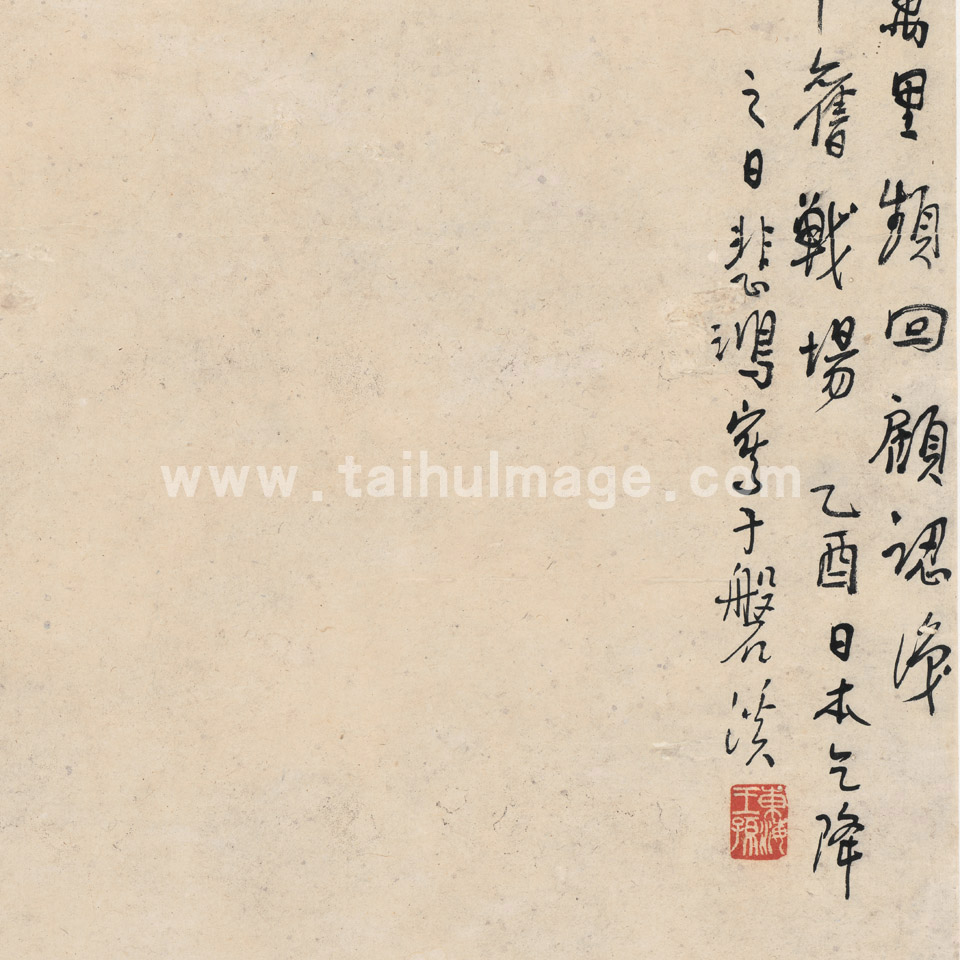 萬里頻回顧認識
舊戰場乙酉日本乞降
之日悲鴻寫于磐溪
東海王孫
www.taihuImage.com